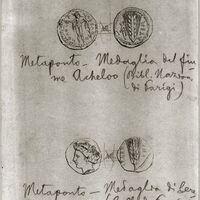 Metaponto – Medaglia del fiu-
me Acheloo (Bibl. Nazion.
di Parigi)
Metaponto – Medaglia di